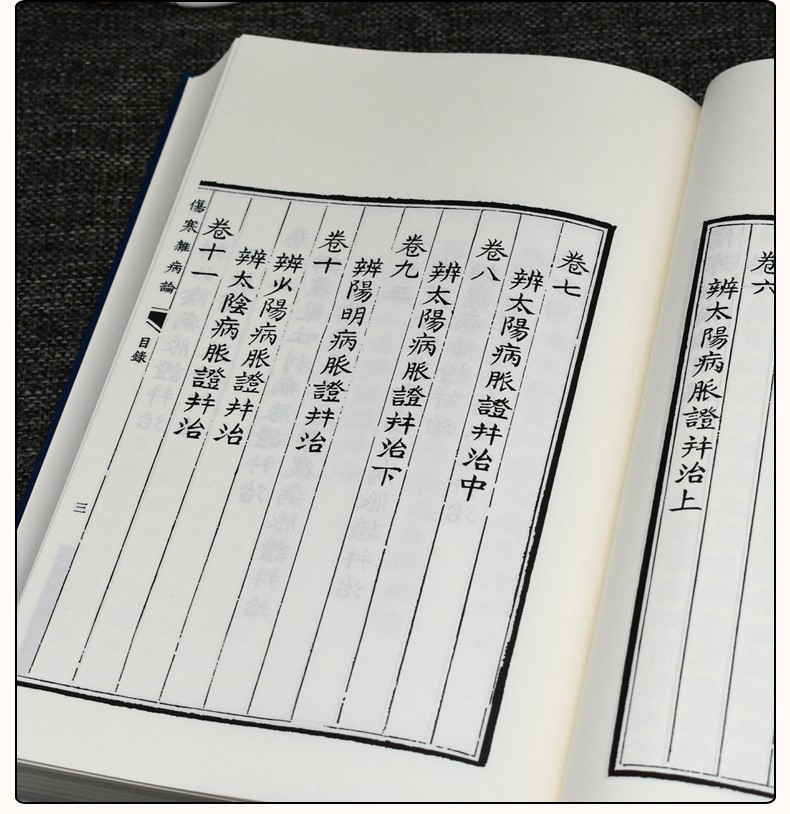 卷六
辨太陽病脈證幷治上
卷七
辨太陽病脈證幷治中
卷八
辨太陽病脈證幷治下
卷九
辨陽明病脈證幷治
卷十
辨少陽病脈證幷治
辨太陰病脈證幷治
卷十一
傷寒雜病論
目錄
三